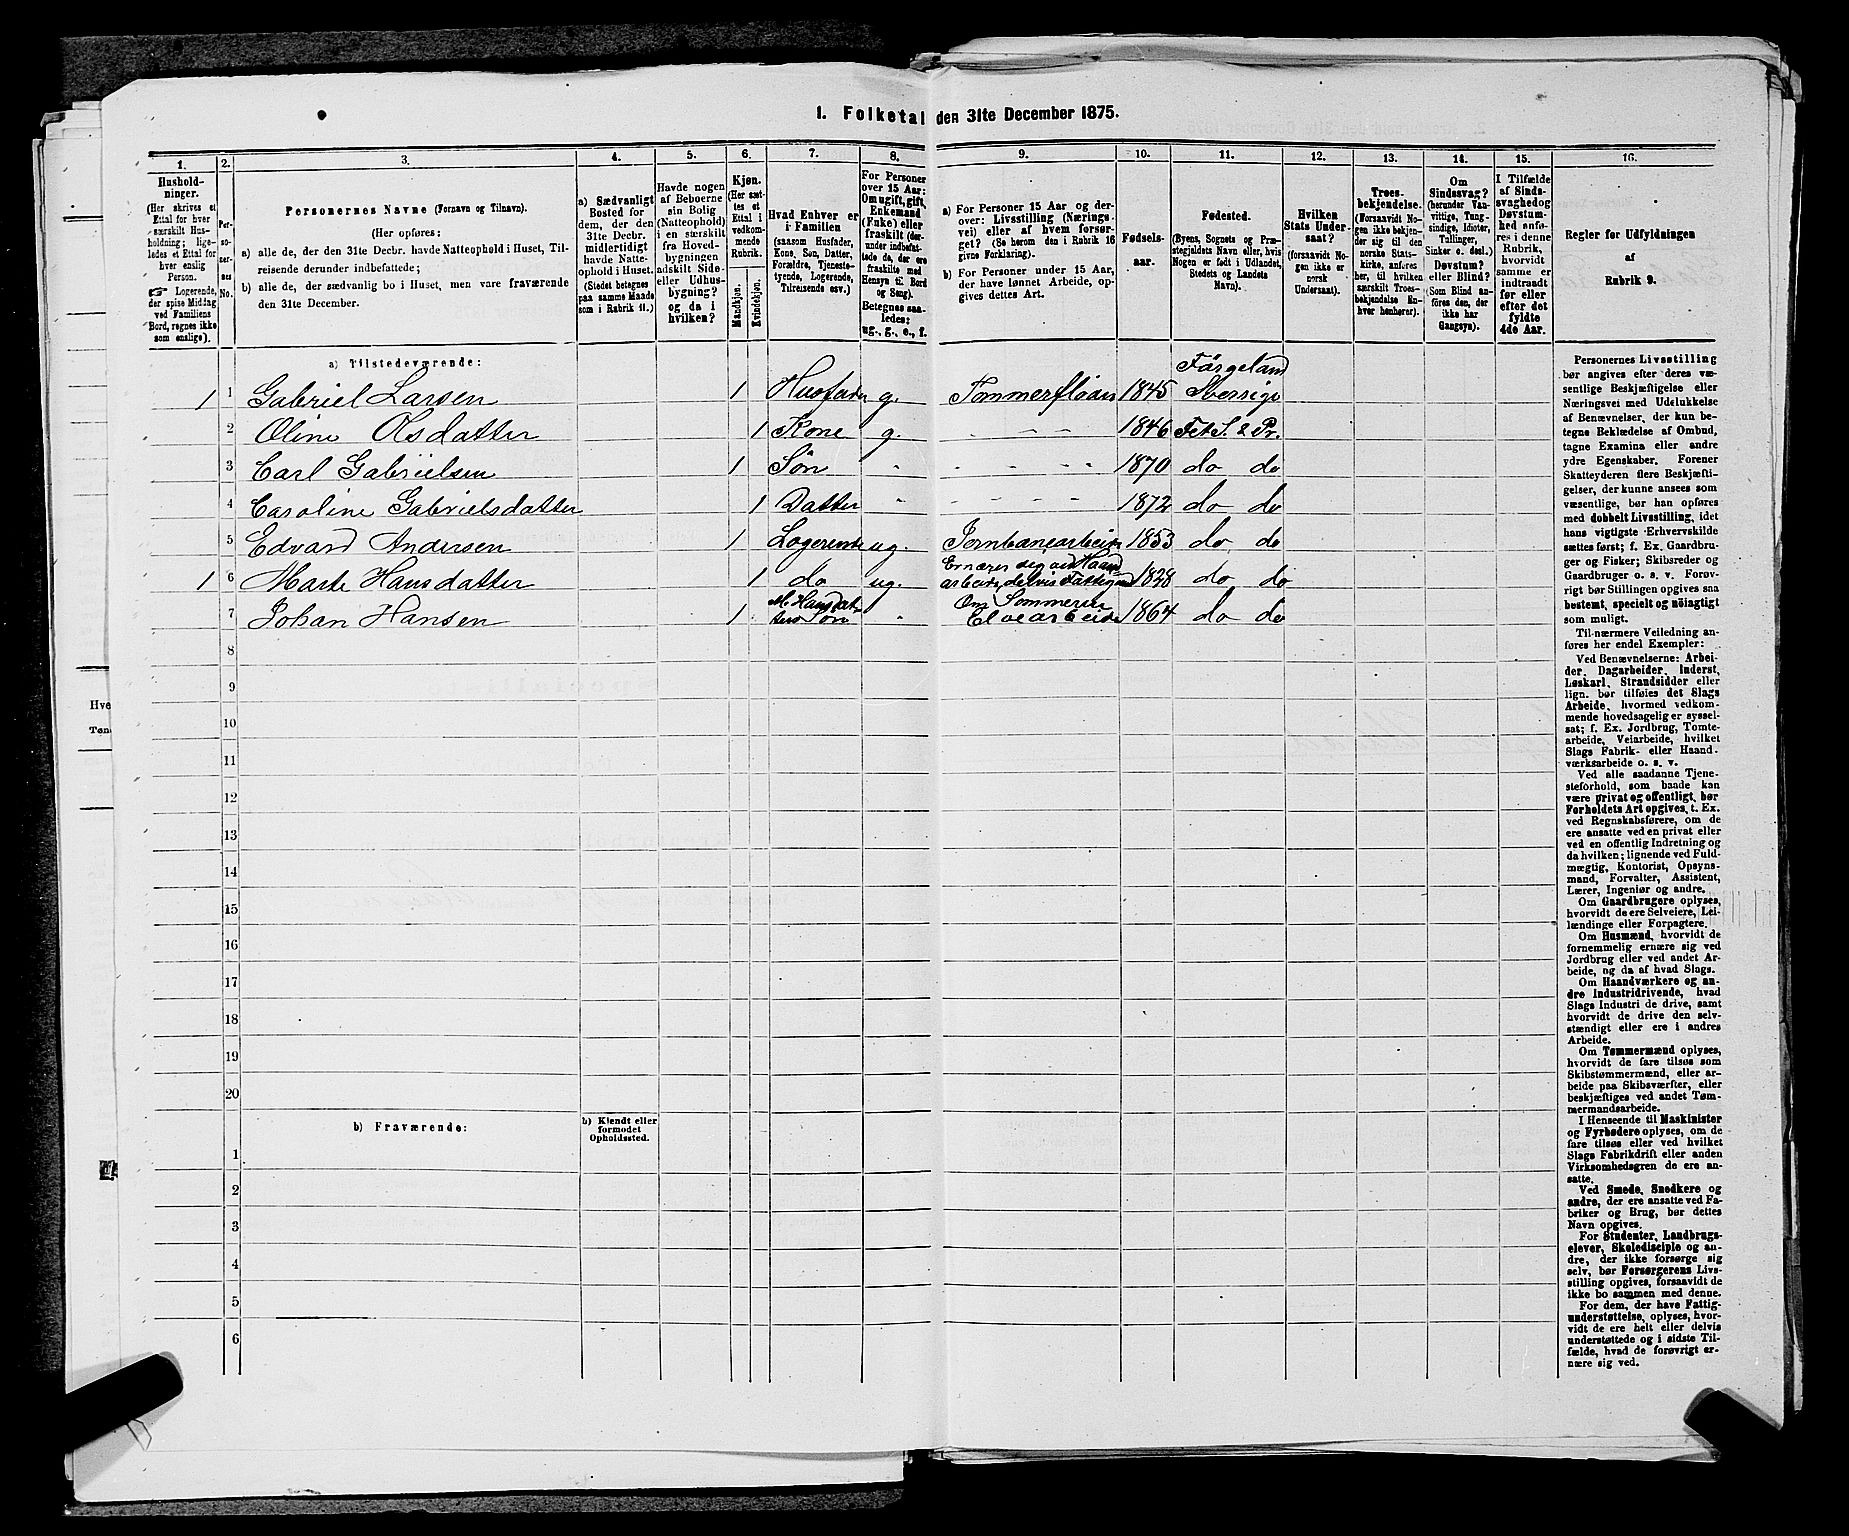 1. Folketal den 31te December 1875.
1. 2. 3. 4. 5. 6. 7. 8. 9. 10. 11. 12. 13. 14. 15. 16.
Hushold-
ninger.
(Her skrives et
Ettal for hver
særskilt Hus-
holdning; lige-
ledes et Ettal for
hver enslig
Person.
☞ Logerende,
der spise Middag
ved Familiens
Bord, regnes ikke
som enslige).
Per-
so-
ner-
nes
No.
Personernes Navne (Fornavn og Tilnavn).
(Her opføres:
a) alle de, der den 31te Decbr. havde Natteophold i Huset, Til-
reisende derunder indbefattede;
b) alle de, der sædvanlig bo i Huset, men vare fraværende
den 31te December.
a) Sædvanligt
Bosted for
dem, der den
31te Decbr.
midlertidigt
havde Natte-
ophold i Huset.
(Stedet betegnes
paa samme Maade
som i Rubrik 11.)
Havde nogen
af Beboerne
sin Bolig
(Natteophold)
i en særskilt
fra Hoved-
bygningen
adskilt Side-
eller Udhus-
bygning?
og da i
hvilken?
Kjøn.
(Her sæt-
tes et
Ettal i
vedkom-
mende
Rubrik.
Mandkjøn.
Kvindekjøn.
Hvad Enhver er
i Familien
(saasom Husfader,
Kone, Søn, Datter,
Forældre, Tjeneste-
tyende, Logerende,
Tilreisende osv.)
For Personer
over 15 Aar:
Om ugift, gift,
Enkemand
(Enke) eller
fraskilt (der-
under indbefat-
tede de, der ere
fraskilte med
Hensyn til Bord
og Seng).
Betegnes saa-
ledes:
ug., g., e., f.
a) For Personer 15 Aar og der-
over: Livsstilling (Nærings-
vei) eller af hvem forsør-
get? (Se herom den i Rubrik 16
givne Forklaring).
b) For Personer under 15 Aar,
der have lønnet Arbeide, op-
gives dettes Art.
Fødsels-
aar.
Fødested.
(Byens, Sognets og Præ-
stegjældets Navn eller, hvis
Nogen er født i Udlandet,
Stedets og Landets
Navn).
Hvilken
Stats Under-
saat?
(forsaavidt No-
gen ikke er
norsk
Undersaat).
Troes-
bekjendelse.
(Forsaavidt No-
gen ikke bekjen-
der sig til den
norske Stats-
kirke, anføres
her, til hvilken
særskilt Troes-
bekjendelse En-
hver henhører).
Om
Sindssvag?
(herunder Van-
vittige, Tung-
sindige, Idioter,
Tullinger,
Sinker o. desl.)
Døvstum?
eller Blind?
(Som Blind an-
føres den, der
ikke har
Gangsyn).
I Tilfælde
af Sinds-
svaghed og
Døvstum-
hed anfø-
res i denne
Rubrik,
hvorvidt
samme er
indtraadt
før eller
efter det
fyldte
4de Aar.
Regler for Udfyldningen
af
Rubrik 9.
a) Tilstedeværende:
1 1 Gabriel Larsen 1 Husfader g. Tømmerfløder 1845 Färgeland Sverrige
2 Oline Olsdatter 1 Kone g. - - - 1846 Fet S. & Pr.
3 Carl Gabrielsen 1 Søn - - - - 1870 do do
4 Caroline Gabrielsdatter 1 Datter - - - - 1872 do do
5 Edvard Andersen 1 Logerende ug. Jernbanearbeider 1853 do do
1 6 Marte Hansdatter 1 do ug. Ernærer sig ved Haand
arbeide, delvis Fattigund 1828 do do
7 Johan Hansen 1 M. Hansdat-
ters Søn - Om Sommeren
Elvearbeide 1864 do do
8
9
10
11
12
13
14
15
16
17
18
19
20
b) Fraværende:
b) Kjendt eller
formodet
Opholdssted.
1
2
3
4
5
6
Personernes Livsstilling
bør angives efter deres væ-
sentlige Beskjæftigelse eller
Næringsvei med Udelukkelse
af Benævnelser, der kun be-
tegne Beklædelse af Ombud,
tagne Examina eller andre
ydre Egenskaber. Forener
Skatteyderen flere Beskjæfti-
gelser, der kunne ansees som
væsentlige, bør han opføres
med dobbelt Livsstilling, idet
hans vigtigste Erhvervskilde
sættes først; f. Ex. Gaardbru-
ger og Fisker; Skibsreder og
Gaardbruger o. s. v. Forøv-
rigt bør Stillingen opgives saa
bestemt, specielt og nøiagtigt
som muligt.
Til nærmere Veiledning an-
føres her endel Exempler:
Ved Benævnelserne: Arbei-
der, Dagarbeider, Inderst,
Løskarl, Strandsidder eller
lign. bør tilføies det Slags
Arbeide, hvormed vedkom-
mende hovedsagelig er syssel-
sat; f. Ex. Jordbrug, Tomte-
arbeide, Veiarbeide, hvilket
Slags Fabrik- eller Haand-
værksarbeide o. s. v.
Ved alle saadanne Tjene-
steforhold, som baade kan
være privat og offentligt, bør
Forholdets Art opgives, t. Ex.
ved Regnskabsførere, om de
ere ansatte ved en privat eller
ved en offentlig Indretning og
da hvilken; lignende ved Fuld-
mægtig, Kontorist, Opsyns-
mand, Forvalter, Assistent,
Lærer, Ingeniør og andre.
Om Gaardbrugere oplyses,
hvorvidt de ere Selveiere, Lei-
lændinge eller Forpagtere.
Om Husmænd, hvorvidt de
fornemmelig ernære sig ved
Jordbrug eller ved andet Ar-
beide, og da af hvad Slags.
Om Haandværkere og an-
dre Industridrivende, hvad
Slags Industri de drive, samt
hvorvidt de drive den selv-
stændigt eller ere i andres
Arbeide.
Om Tømmermænd oplyses,
hvorvidt de fare tilsøs som
Skibstømmermænd, eller ar-
beide paa Skibsværfter, eller
beskjæftiges ved andet Tøm-
mermandsarbeide.
I Henseende til Maskinister
og Fyrbødere oplyses, om de
fare tilsøs eller ved hvilket
Slags Fabrikdrift eller anden
Virksomhedsgren de ere an-
satte.
Ved Smede, Snedkere og
andre, der ere ansatte ved Fa-
briker og Brug, bør dettes
Navn opgives.
For Studenter, Landbrugs-
elever, Skoledisciple og an-
dre, der ikke forsørge sig
selv, bør Forsørgerens Livs-
stilling opgives, forsaavidt de
ikke bo sammen med denne.
For dem, der have Fattig-
understøttelse, oplyses, hvor-
vidt de ere helt eller delvis
understøttede og i sidste Til-
fælde, hvad de forøvrigt er-
nære sig ved.
Hve
Tønd